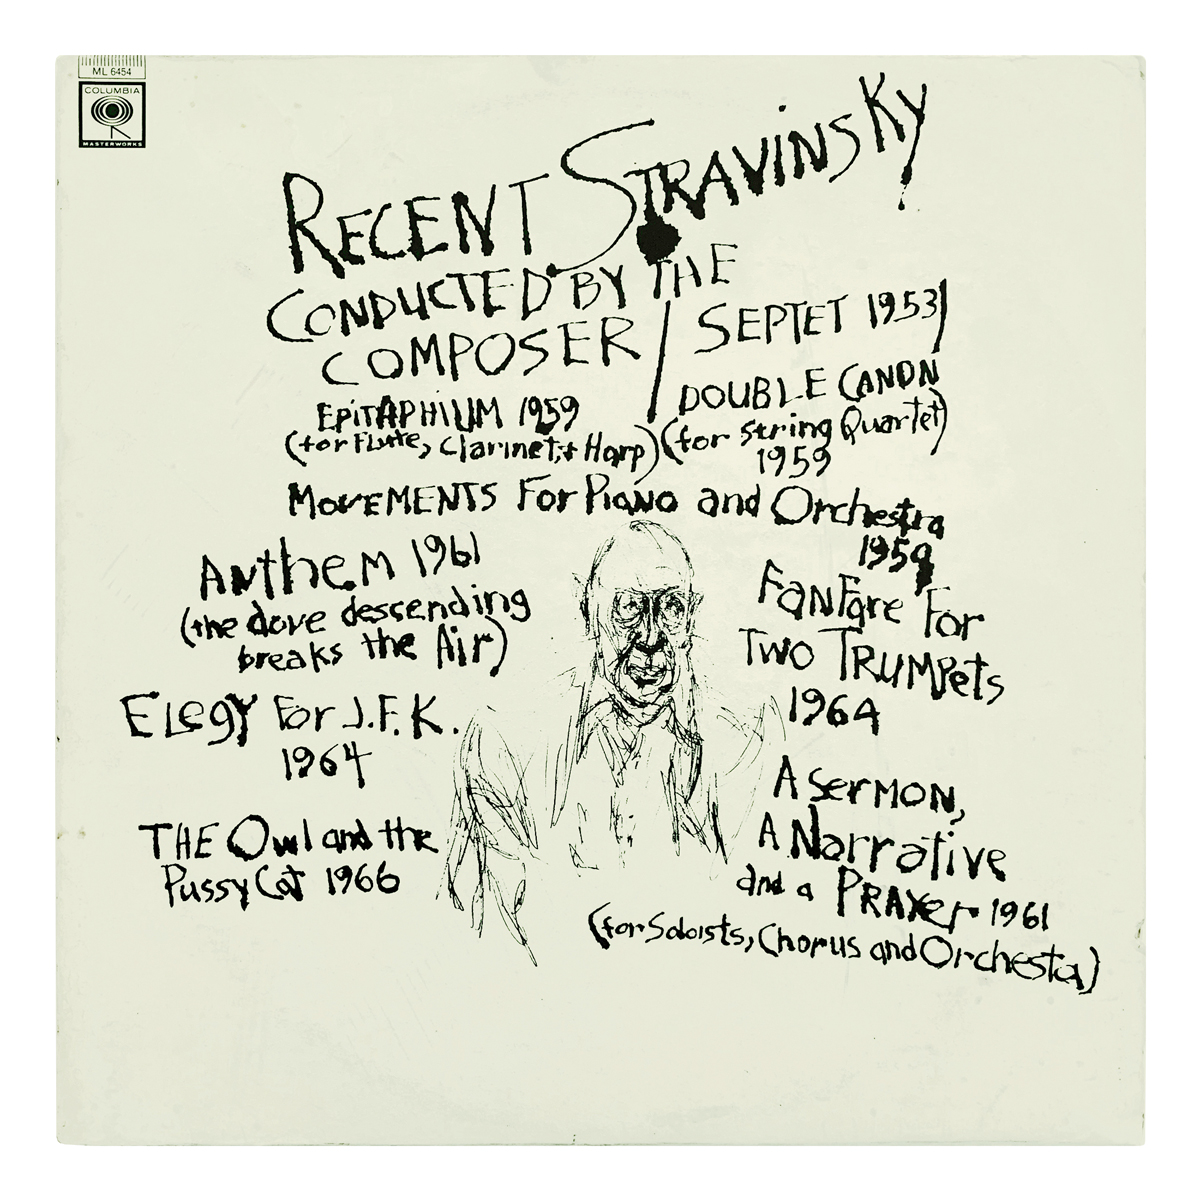 ML 6454
COLUMBIA
MASTERWORKS
RECENT STRAVINSKY
CONDUCTED BY THE
COMPOSER / SEPTET 1953/
EPITAPHIUM 1959
(for Flute, Clarinet, + Harp)
DOUBLE CANON
(for string Quartet)
1959
MOVEMENTS For Piano and Orchestra
1959
Anthem 1961
(the dove descending
breaks the Air)
FanFare For
Two TRUMPets
1964
Elegy For J.F.K.
1964
A Sermon,
A Narrative
and a PRAYer 1961
(for Soloists, Chorus and Orchesta)
THE Owl and the
PussyCat 1966